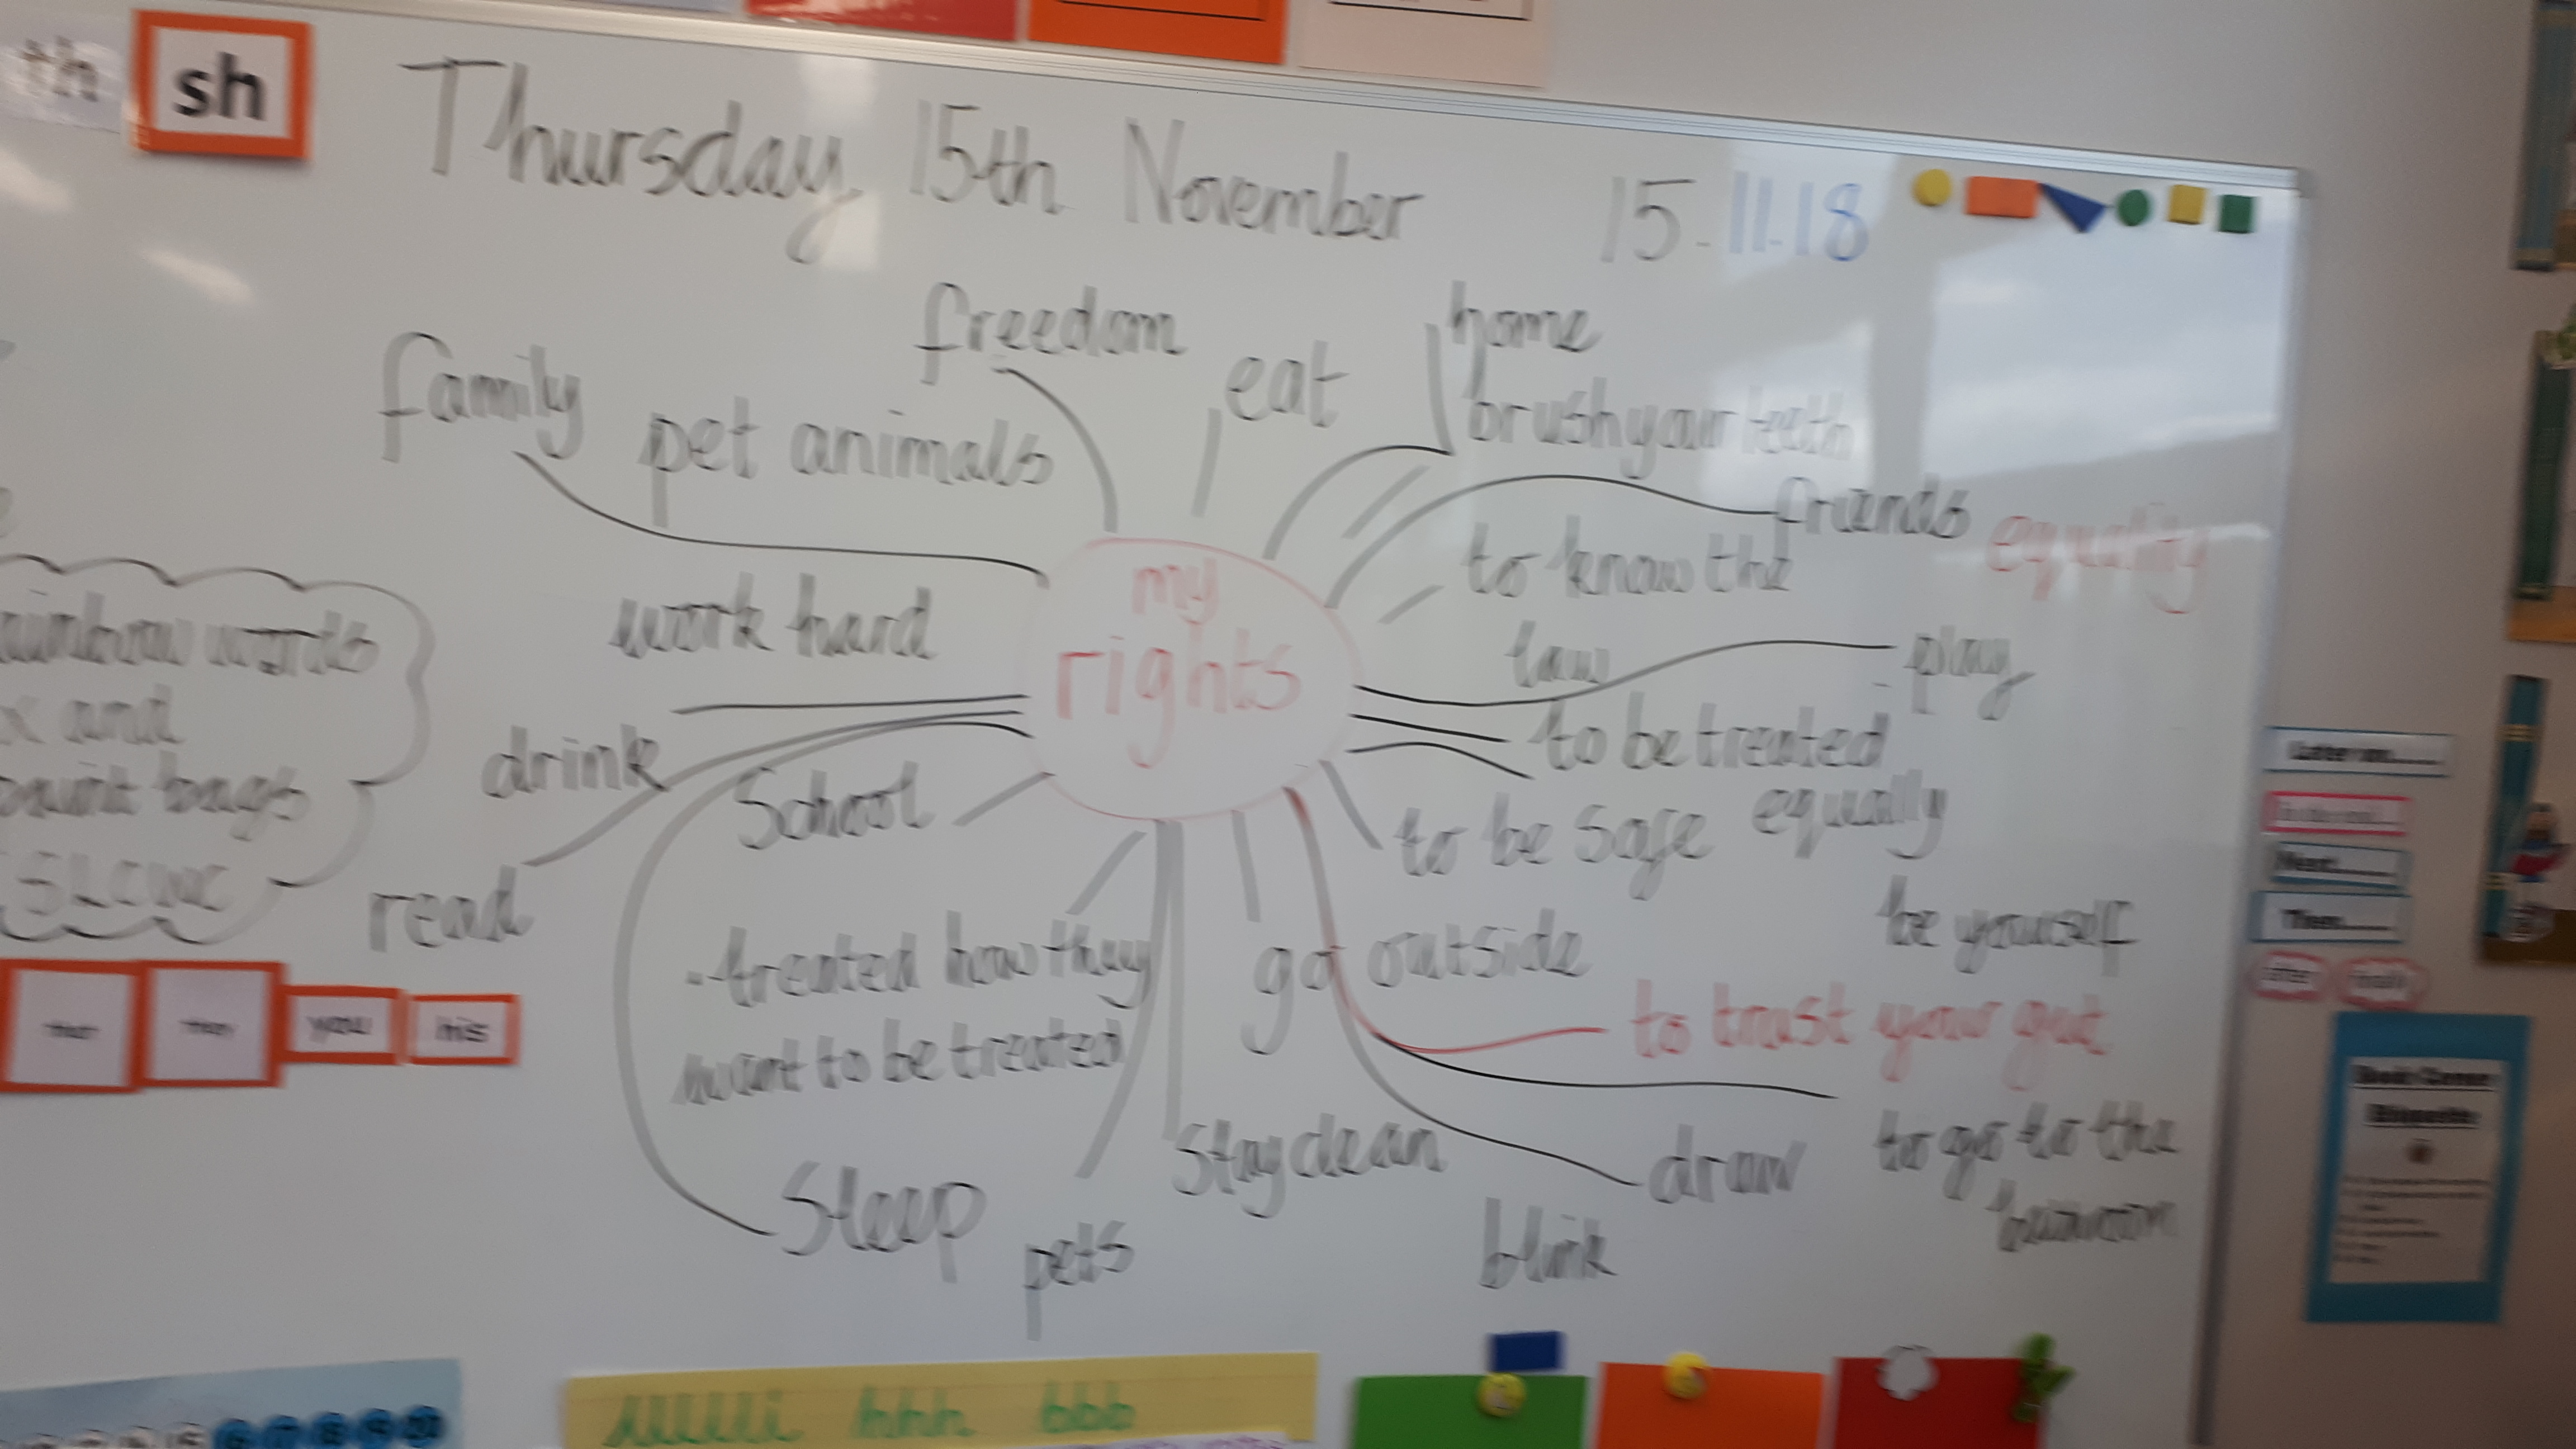 th
sh
Thursday 15th November
15.11.18
freedom
home
family
eat
pet animals
brush your teeth
friends
equality
to know the
law
my
rights
work hard
play
drink
School
to be treated
equally
to be safe
read
be yourself
-treated how they
want to be treated
go outside
to trust your gut
Stay clean
draw
to go to the
bathroom
Sleep
pets
blink
words
x and
paint bags
you
his
Later on......
Next......
Then......
Book Corner
Etiquette
hhh bbb